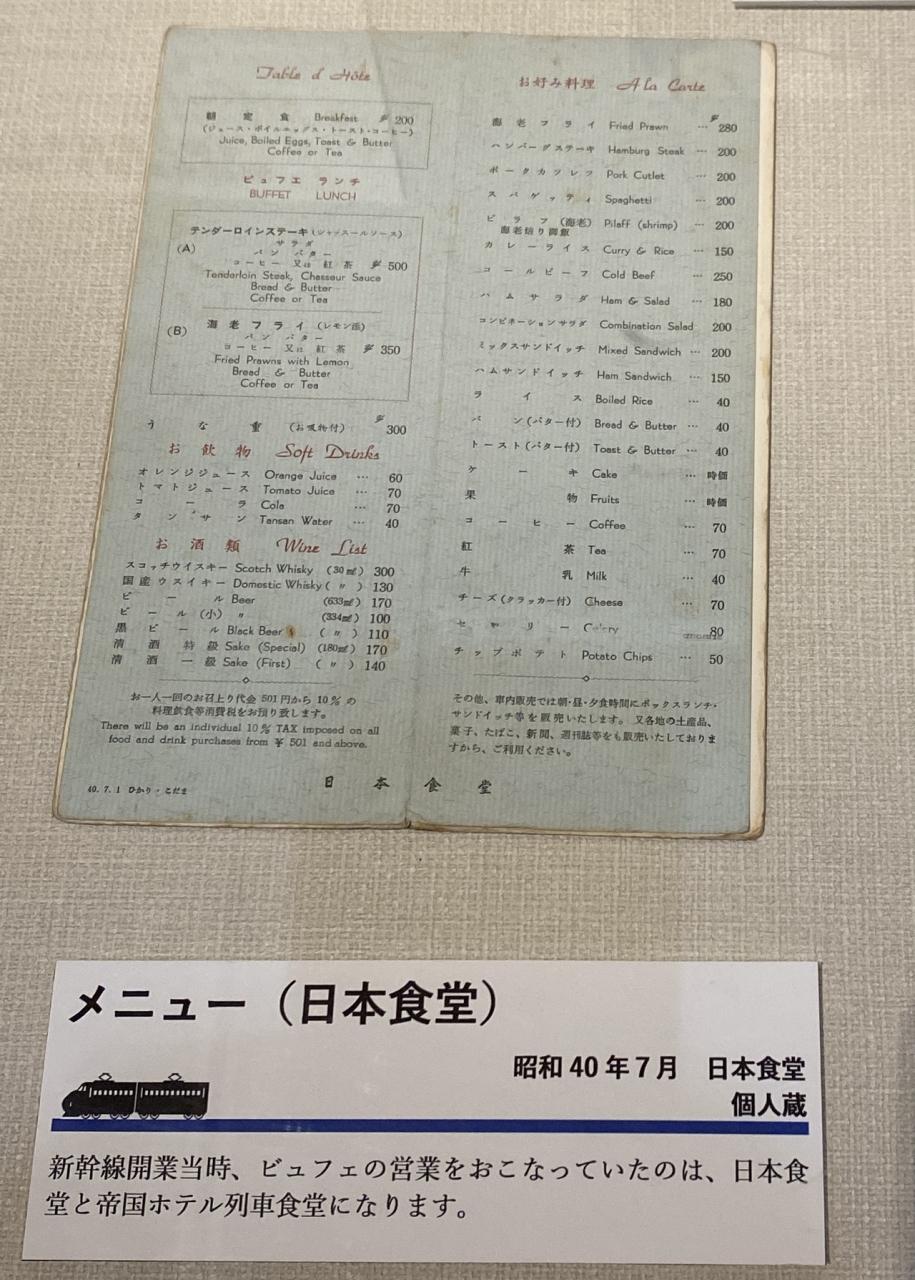 Table d'Hôte
朝定食 Breakfast ￥200
(ジュース・ボイルエッグス・トースト・コーヒー)
Juice, Boiled Eggs, Toast & Butter
Coffee or Tea
ビュフエ ランチ
BUFFET LUNCH
(A)
テンダーロインステーキ(シャッスールソース)
サラダ
パン バター
コーヒー 又は 紅茶 ￥500
Tenderloin Steak, Chasseur Sauce
Bread & Butter
Coffee or Tea
(B)
海老フライ (レモン添)
パン バター
コーヒー 又は 紅茶 ￥350
Fried Prawns with Lemon
Bread & Butter
Coffee or Tea
うな重 (お吸物付) ￥300
お飲物 Soft Drinks
オレンジジュース Orange Juice … 60
トマトジュース Tomato Juice … 70
コーラ Cola … 70
タンサン Tansan Water … 40
お酒類 Wine List
スコッチウイスキー Scotch Whisky (30㎖) 300
国産ウスイキー Domestic Whisky (〃) 130
ビール Beer (633㎖) 170
ビール(小) 〃 (334㎖) 100
黒ビール Black Beer (〃) 110
清酒 特級 Sake (Special) (180㎖) 170
清酒 一級 Sake (First) (〃) 140
お一人一回のお召上り代金 501円から 10%の
料理飲食等消費税をお預り致します。
There will be an individual 10% TAX imposed on all
food and drink purchases from ￥ 501 and above.
お好み料理 A la Carte
海老フライ Fried Prawn … ￥280
ハンバーグステーキ Hamburg Steak … 200
ポークカツレツ Pork Cutlet … 200
スパゲッティ Spaghetti … 200
ピラフ(海老) Pilaff (shrimp) … 200
海老焙り御飯
カレーライス Curry & Rice … 150
コールビーフ Cold Beef … 250
ハムサラダ Ham & Salad … 180
コンビネーションサラダ Combination Salad 200
ミックスサンドイッチ Mixed Sandwich … 200
ハムサンドイッチ Ham Sandwich … 150
ライス Boiled Rice … 40
パン(バター付) Bread & Butter … 40
トースト(バター付) Toast & Butter … 40
ケーキ Cake … 時価
果物 Fruits … 時価
コーヒー Coffee … 70
紅茶 Tea … 70
牛乳 Milk … 40
チーズ(クラッカー付) Cheese … 70
セロリー Celery 80
チップポテト Potato Chips … 50
その他、車内販売では朝・昼・夕食時間にボックスランチ・
サンドイッチ等を販売いたします。又各地の土産品、
菓子、たばこ、新聞、週刊誌等をも販売いたしておりま
すから、ご利用ください。
40.7.1 ひかり・こだま
日本食堂
メニュー（日本食堂）
昭和40年7月 日本食堂
個人蔵
新幹線開業当時、ビュフェの営業をおこなっていたのは、日本食
堂と帝国ホテル列車食堂になります。